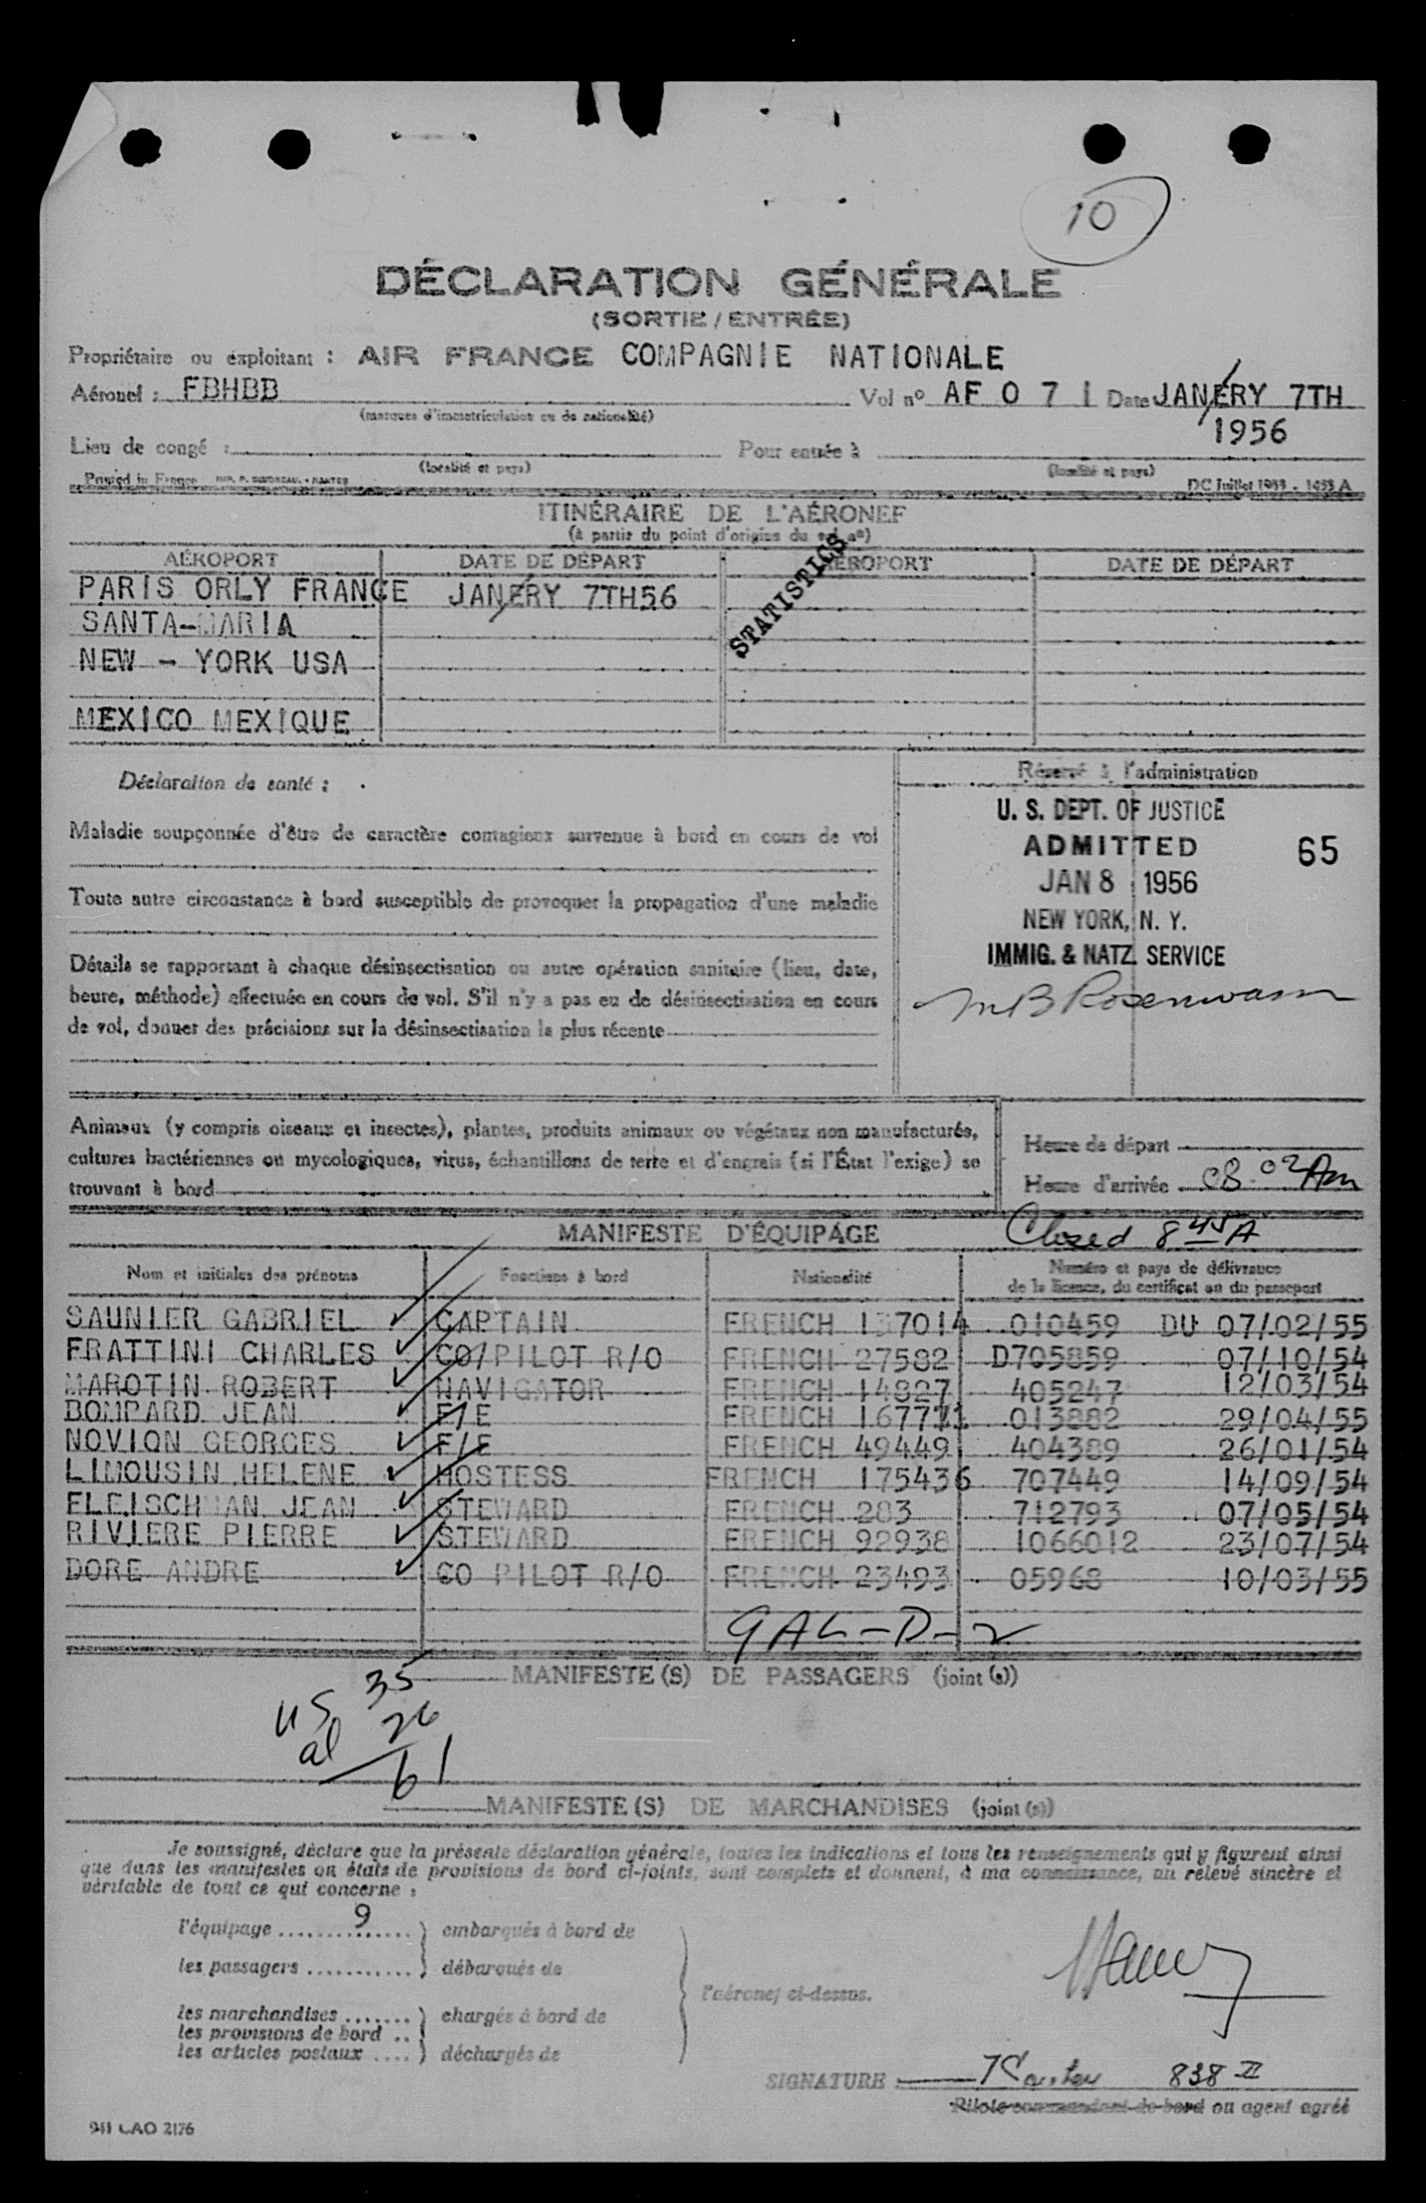 10
DÉCLARATION GÉNÉRALE
(SORTIE / ENTRÉE)
Propriétaire ou exploitant : AIR FRANCE COMPAGNIE NATIONALE
Aéronef : FBHBB Vol nº AF 071 Date JANERY 7TH
(marques d'immatriculation ou de nationalité) 1956
Lieu de congé : Pour entrée à
(localité et pays) (localité et pays)
Printed in France DC Juillet 1953 - 1053 A
ITINÉRAIRE DE L'AÉRONEF
(à partir du point d'origine du
STATISTICS
AÉROPORT DATE DE DÉPART AÉROPORT DATE DE DÉPART
PARIS ORLY FRANCE JANERY 7TH56
SANTA-MARIA
NEW - YORK USA
MEXICO MEXIQUE
Déclaration de santé :
Maladie soupçonnée d'être de caractère contagieux survenue à bord en cours de vol
Toute autre circonstance à bord susceptible de provoquer la propagation d'une maladie
Détails se rapportant à chaque désinsectisation ou autre opération sanitaire (lieu, date,
heure, méthode) effectuée en cours de vol. S'il n'y a pas eu de désinsectisation en cours
de vol, donner des précisions sur la désinsectisation la plus récente
Réservé à l'administration
U. S. DEPT. OF JUSTICE
ADMITTED 65
JAN 8 1956
NEW YORK, N. Y.
IMMIG. & NATZ. SERVICE
Animaux (y compris oiseaux et insectes), plantes, produits animaux ou végétaux non manufacturés,
cultures bactériennes ou mycologiques, virus, échantillons de terre et d'engrais (si l'État l'exige) se
trouvant à bord
Heure de départ
Heure d'arrivée 08 02 Am
Closed 8 45 A
MANIFESTE D'ÉQUIPAGE
Nom et initiales des prénoms Fonctions à bord Nationalité Numéro et pays de délivrance
de la licence, du certificat ou du passeport
SAUNIER GABRIEL CAPTAIN FRENCH 137014 010459 DU 07/02/55
FRATTINI CHARLES CO/PILOT R/O FRENCH 27582 D705859 07/10/54
MAROTIN ROBERT NAVIGATOR FRENCH 14827 405247 12/03/54
BOMPARD JEAN F/E FRENCH 167771 013882 29/04/55
NOVION GEORGES F/E FRENCH 49449 404389 26/01/54
LIMOUSIN HELENE HOSTESS FRENCH 175436 707449 14/09/54
FLEISCHMAN JEAN STEWARD FRENCH 283 712793 07/05/54
RIVIERE PIERRE STEWARD FRENCH 92938 1066012 23/07/54
DORE ANDRE CO PILOT R/O FRENCH 23493 05968 10/03/55
GAL-D-2
MANIFESTE (S) DE PASSAGERS (joint (s))
US 35
al 26
61
MANIFESTE (S) DE MARCHANDISES (joint (s))
Je soussigné, déclare que la présente déclaration générale, toutes les indications et tous les renseignements qui y figurent ainsi
que dans les manifestes ou états de provisions de bord ci-joints, sont complets et donnent, à ma connaissance, un relevé sincère et
véritable de tout ce qui concerne :
l'équipage 9 embarqués à bord de
les passagers débarqués de
l'aéronef ci-dessus.
les marchandises chargés à bord de
les provisions de bord
les articles postaux déchargés de
SIGNATURE 838 II
Pilote commandant de bord ou agent agréé
941 CAO 2176